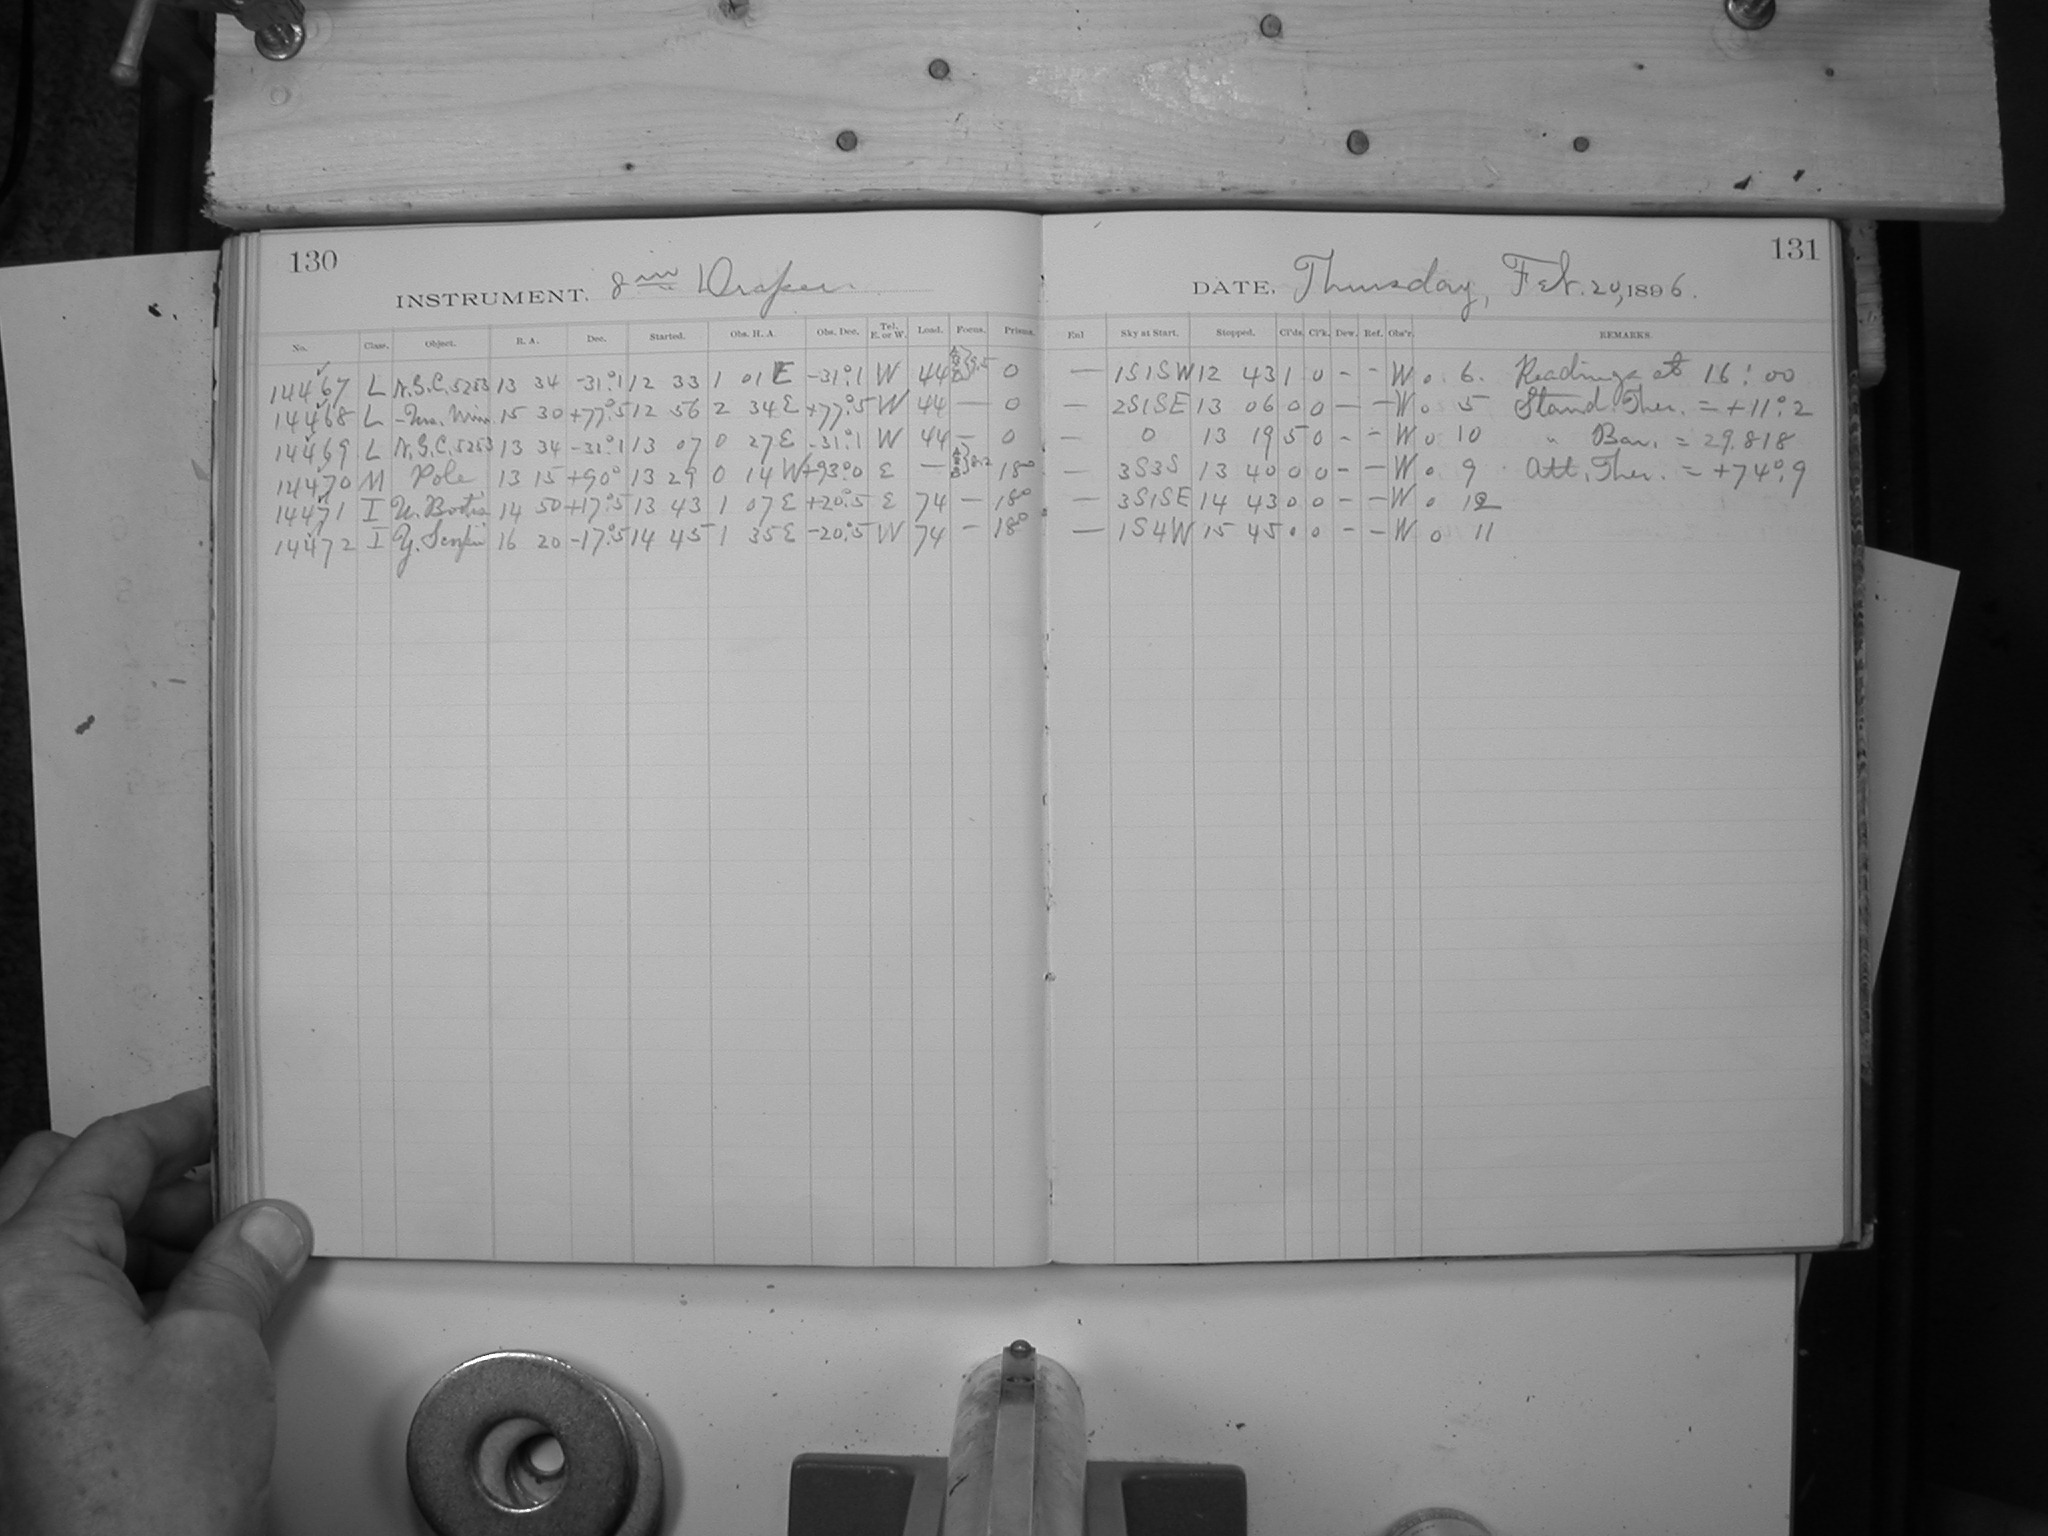 130
INSTRUMENT. 8 in Draper.
No. Class. Object. R. A. Dec. Started. Obs. H. A. Obs. Dec. Tel. E. or W. Load. Focus. Prisms.
14467 L N.G.C. 5253 13 34 -31°.1 12 33 1 01 E -31°.1 W 44 9.5 0
14468 L Urs. Min. 15 30 +77°.5 12 56 2 34 E +77°.5 W 44 — 0
14469 L N.G.C. 5253 13 34 -31°.1 13 07 0 27 E -31°.1 W 44 — 0
14470 M Pole 13 15 +90° 13 29 0 14 W +93°.0 E — 18°
14471 I U. Bootis 14 50 +17°.5 13 43 1 07 E +20°.5 E 74 — 18°
14472 I Y. Scorpii 16 20 -17°.5 14 45 1 35 E -20°.5 W 74 — 18°
131
DATE, Thursday, Feb. 20, 1896.
Enl Sky at Start. Stopped. Cl'ds. Cl'k. Dew. Ref. Obs'r. REMARKS.
— 1S1SW 12 43 1 0 - - W 0 6. Readings at 16:00
— 2S1SE 13 06 0 0 — - W 0 5 Stand. Ther. = +11°.2
— 0 13 19 5 0 - - W 0 10 " Bar. = 29.818
— 3S3S 13 40 0 0 - - W 0. 9 Att. Ther. = +74°.9
— 3S1SE 14 43 0 0 - - W 0 12
— 1S4W 15 45 0 0 - - W 0 11